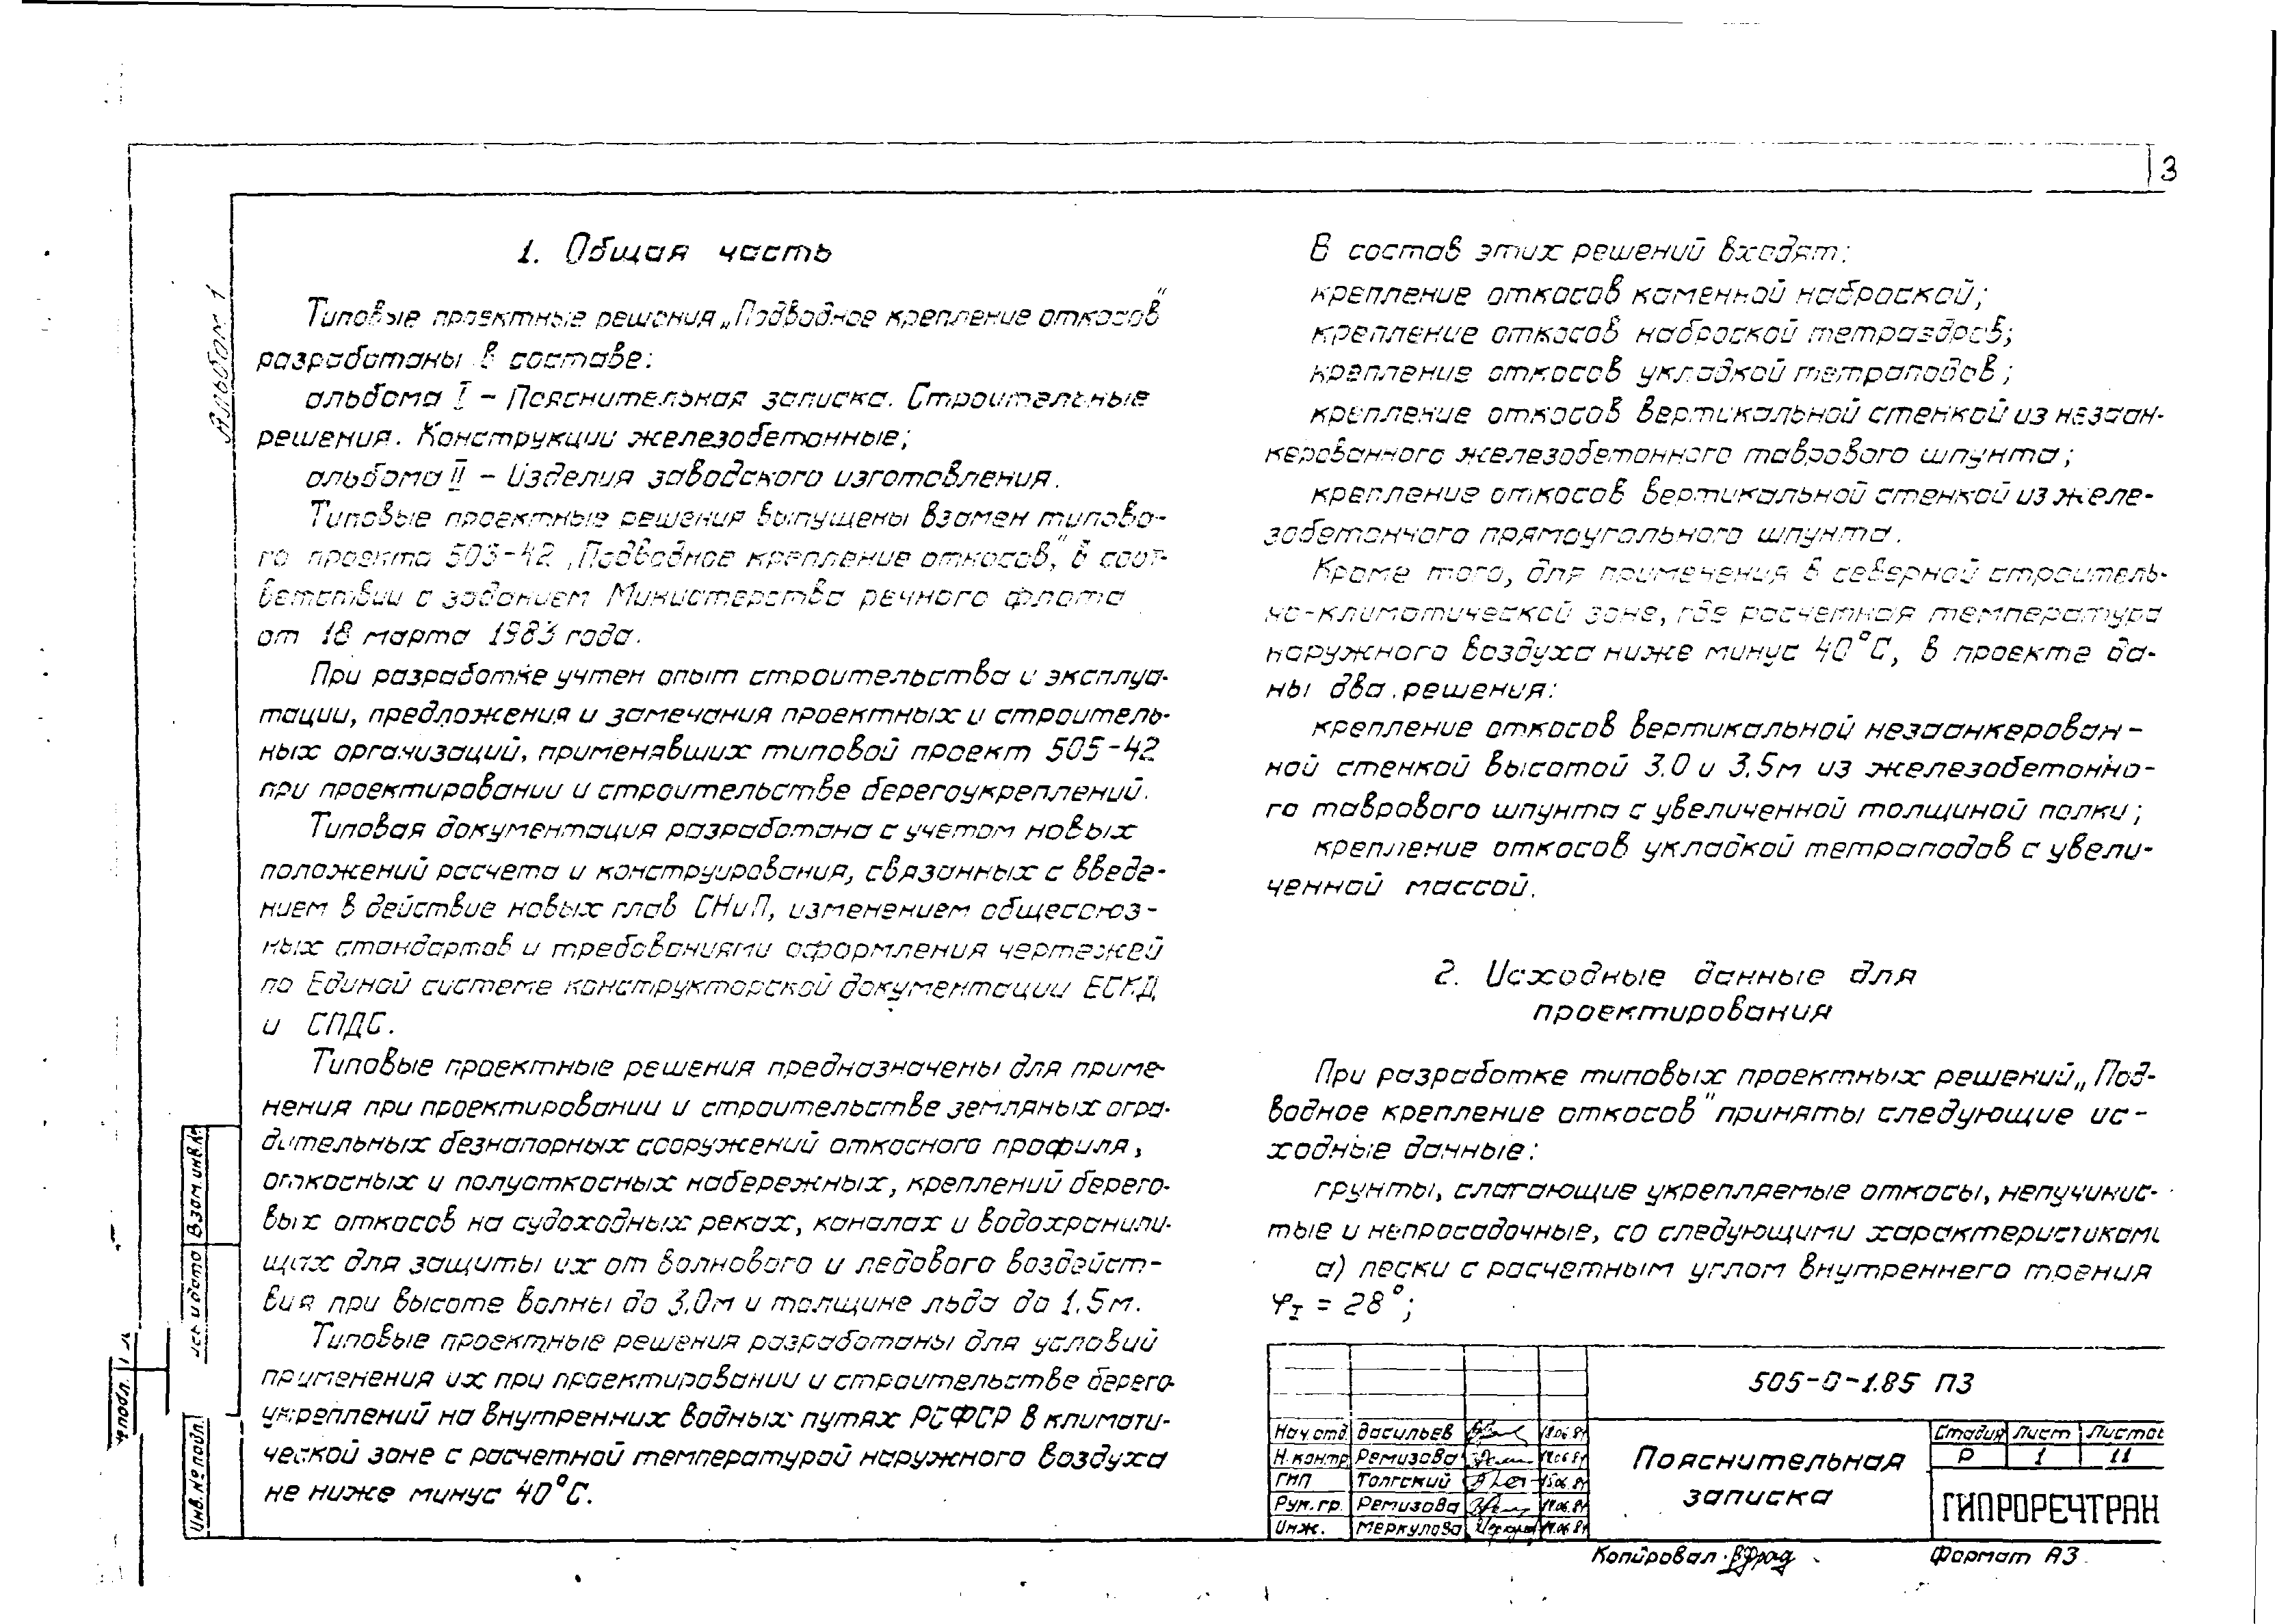 3
Альбом 1
1. Общая часть
Типовые проектные решения „Подводное крепление откосов"
разработаны в составе:
альбома I – Пояснительная записка. Строительные
решения. Конструкции железобетонные;
альбома II – Изделия заводского изготовления.
Типовые проектные решения выпущены взамен типово-
го проекта 503-42 „Подводное крепление откосов", в соот-
ветствии с заданием Министерства речного флота
от 18 марта 1983 года.
При разработке учтен опыт строительства и эксплуа-
тации, предложения и замечания проектных и строитель-
ных организаций, применявших типовой проект 505-42
при проектировании и строительстве берегоукреплений.
Типовая документация разработана с учетом новых
положений расчета и конструирования, связанных с введе-
нием в действие новых глав СНиП, изменением общесоюз-
ных стандартов и требованиями оформления чертежей
по Единой системе конструкторской документации ЕСКД
и СПДС.
Типовые проектные решения предназначены для приме-
нения при проектировании и строительстве земляных огра-
дительных безнапорных сооружений откосного профиля,
откосных и полуоткосных набережных, креплений берего-
вых откосов на судоходных реках, каналах и водохранили-
щах для защиты их от волнового и ледового воздейст-
вия при высоте волны до 3,0м и толщине льда до 1,5м.
Типовые проектные решения разработаны для условий
применения их при проектировании и строительстве берего-
укреплений на внутренних водных путях РСФСР в климати-
ческой зоне с расчетной температурой наружного воздуха
не ниже минус 40°С.
В состав этих решений входят:
крепление откосов каменной наброской;
крепление откосов наброской тетраэдров;
крепление откосов укладкой тетраподов;
крепление откосов вертикальной стенкой из незаан-
керованного железобетонного таврового шпунта;
крепление откосов вертикальной стенкой из желе-
зобетонного прямоугольного шпунта.
Кроме того, для применения в северной строитель-
но-климатической зоне, где расчетная температура
наружного воздуха ниже минус 40°С, в проекте да-
ны два решения:
крепление откосов вертикальной незаанкерован-
ной стенкой высотой 3.0 и 3.5м из железобетонно-
го таврового шпунта с увеличенной толщиной полки;
крепление откосов укладкой тетраподов с увели-
ченной массой.
2. Исходные данные для
проектирования
При разработке типовых проектных решений „Под-
водное крепление откосов" приняты следующие ис-
ходные данные:
грунты, слагающие укрепляемые откосы, непучинис-
тые и непросадочные, со следующими характеристиками
а) пески с расчетным углом внутреннего трения
φI = 28°;
505-0-1.85 ПЗ
Нач.отд. Васильев 18.06.84
Н.контр Ремизова 18.06.84
ГИП Толгский 15.06.84
Рук.гр. Ремизова 14.06.84
Инж. Меркулова 14.06.84
Пояснительная
записка
Стадия Лист Листов
Р 1 11
ГИПРОРЕЧТРАН
Копировал
Формат А3
Взам.инв.№
и дата
Инв.№ подл.
№ подл.